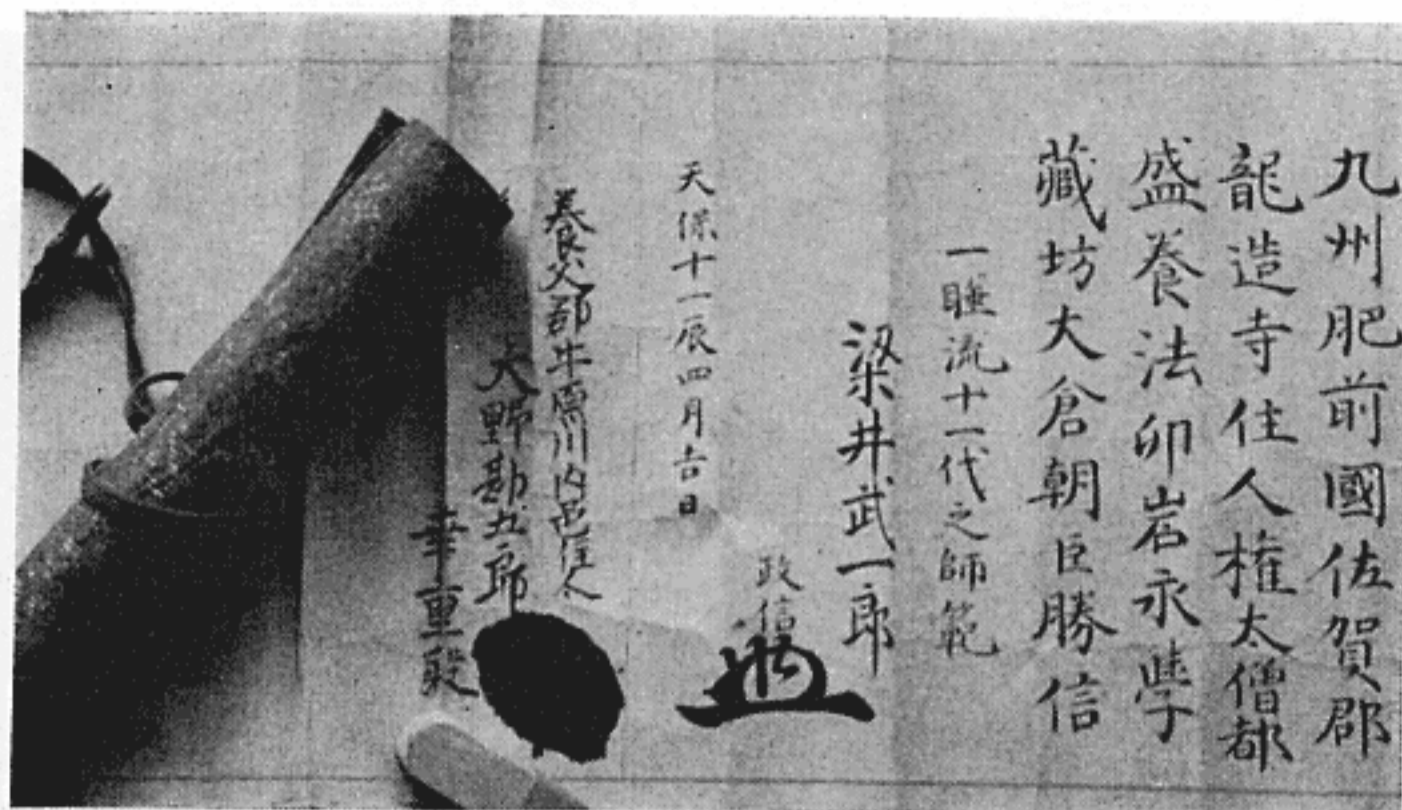 九州肥前國佐賀郡
龍造寺住人権太僧都
盛養法卯岩永學
藏坊大倉朝臣勝信
一睡流十一代之師範
梁井武一郎
政信
天保十一辰四月吉日
養父郡牛原川内邑住人
天野勘五郎
幸重殿